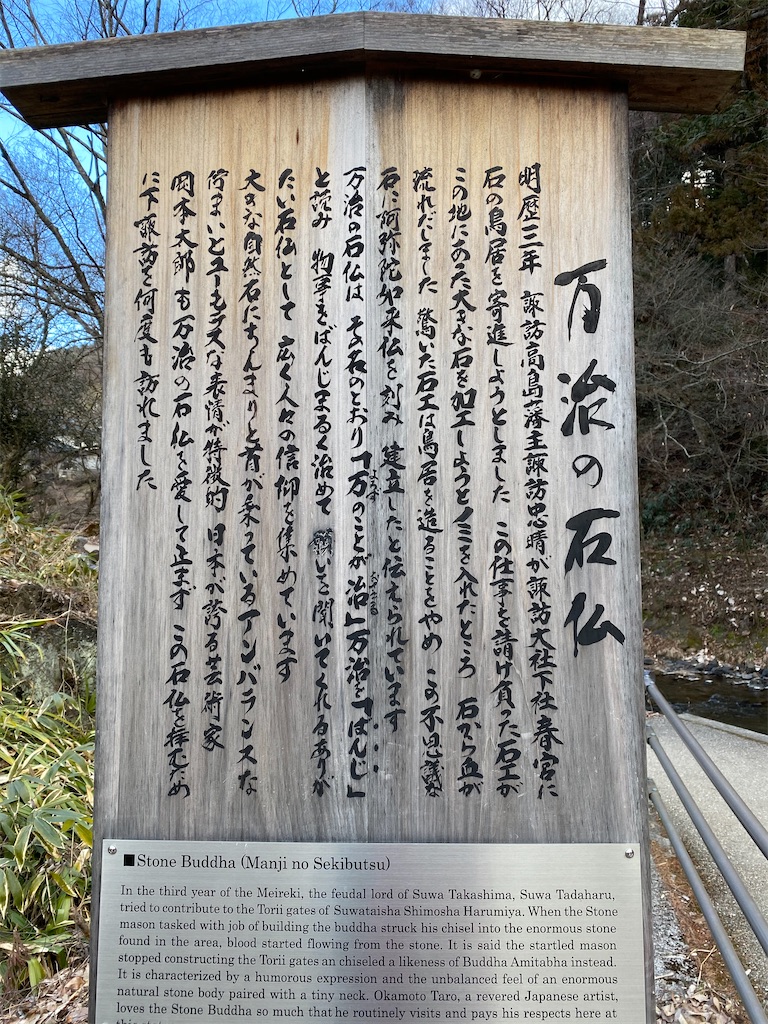 万治の石仏
明歴三年 諏訪高島藩主諏訪忠晴が諏訪大社下社春宮に
石の鳥居を寄進しようとしました この仕事を請け負った石工が
この地にあった大きな石を加工しようとノミを入れたところ 石から血が
流れだしました 驚いた石工は鳥居を造ることをやめ この不思議な
石に阿弥陀如来仏を刻み 建立したと伝えられています
万治の石仏は その名のとおり「万のことが治」万治を「ばんじ」
よろず おさまる
と読み 物事をばんじまるく治めて 願いを聞いてくれるありが
たい石仏として 広く人々の信仰を集めています
大きな自然石にちんまりと首が乗っているアンバランスな
佇まいとユーモラスな表情が特徴的 日本が誇る芸術家
岡本太郎も万治の石仏を愛して止まず この石仏を拝むため
に下諏訪を何度も訪れました
■Stone Buddha (Manji no Sekibutsu)
In the third year of the Meireki, the feudal lord of Suwa Takashima, Suwa Tadaharu,
tried to contribute to the Torii gates of Suwataisha Shimosha Harumiya. When the Stone
mason tasked with job of building the buddha struck his chisel into the enormous stone
found in the area, blood started flowing from the stone. It is said the startled mason
stopped constructing the Torii gates an chiseled a likeness of Buddha Amitabha instead.
It is characterized by a humorous expression and the unbalanced feel of an enormous
natural stone body paired with a tiny neck. Okamoto Taro, a revered Japanese artist,
loves the Stone Buddha so much that he routinely visits and pays his respects here at